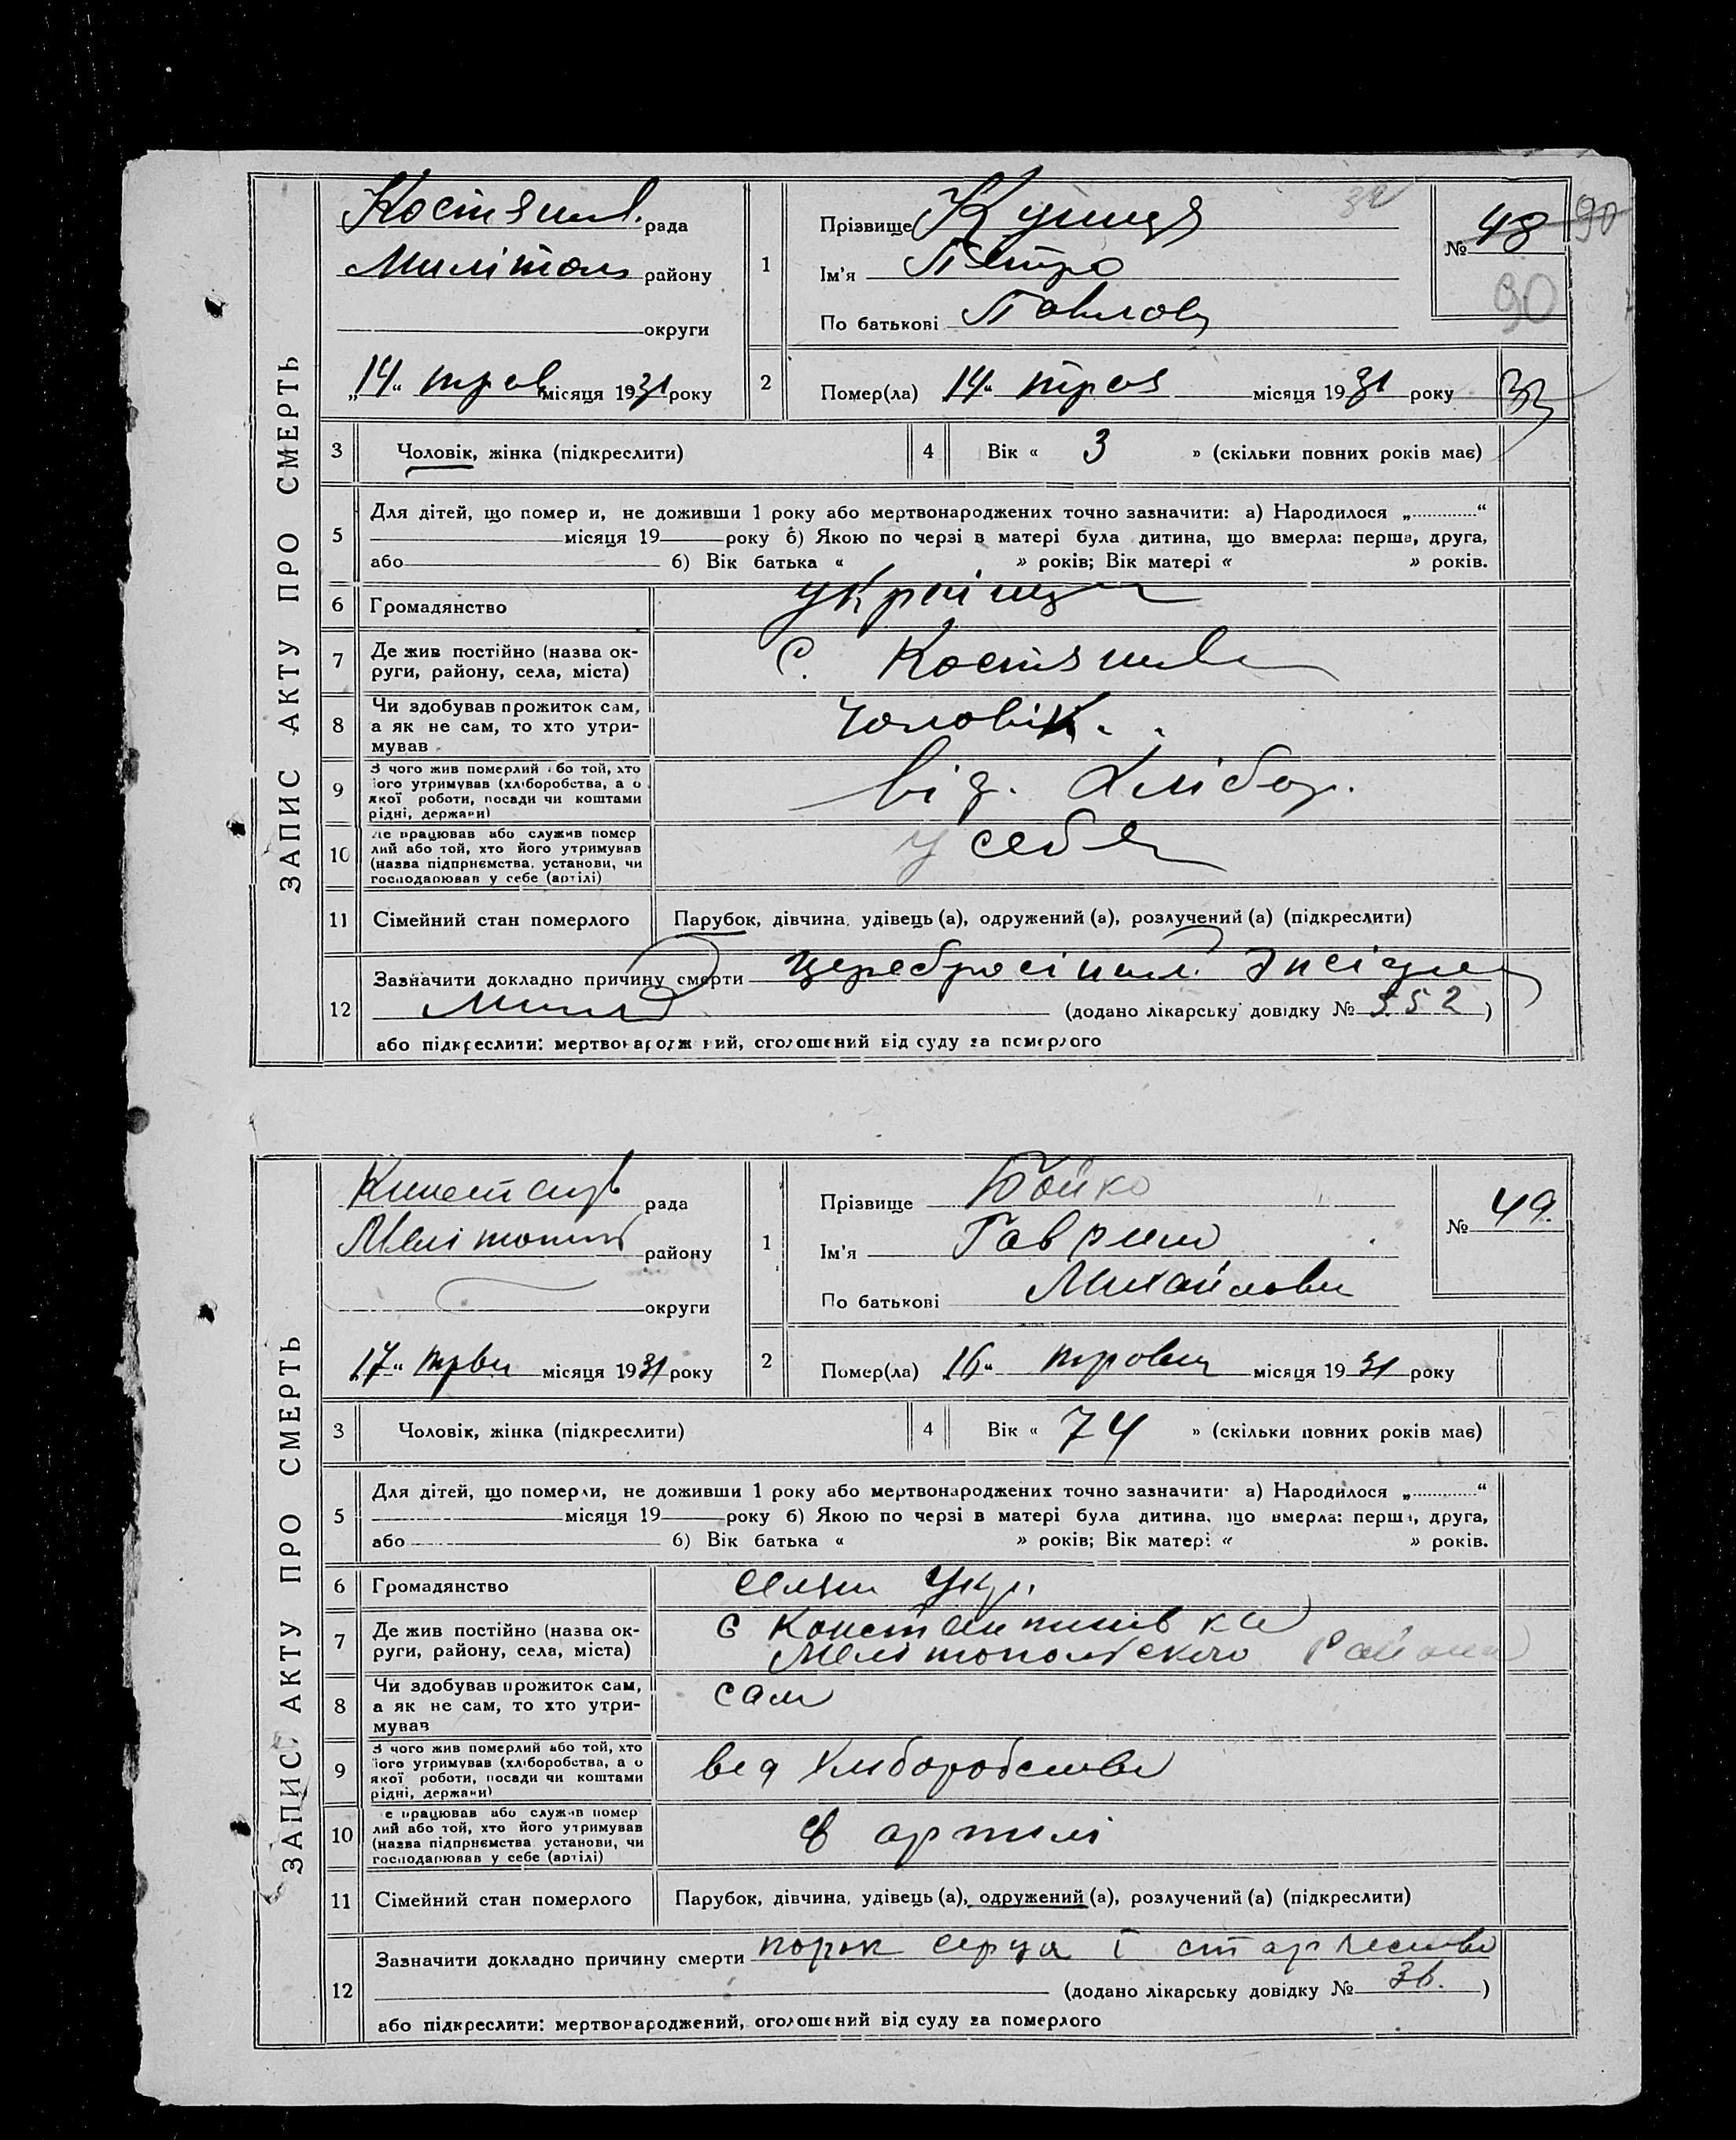 ЗАПИС АКТУ ПРО СМЕРТЬ
рада
району
округи
„14" трав місяця 1931 року
1
Прізвище
Ім'я Петро
По батькові Павлов
№ 48 90
90
2
Помер(ла) 14" трав місяця 1931 року
32
3 Чоловік, жінка (підкреслити)
4 Вік « 3 » (скільки повних років має)
5
Для дітей, що помер и, не доживши 1 року або мертвонароджених точно зазначити: а) Народилося „............“
місяця 19 року б) Якою по черзі в матері була дитина, що вмерла: перша, друга,
або б) Вік батька « » років; Вік матері « » років.
6 Громадянство
7 Де жив постійно (назва ок-
руги, району, села, міста)
с.
8 Чи здобував прожиток сам,
а як не сам, то хто утри-
мував
чоловік.
9 З чого жив померлий або той, хто
його утримував (хліборобства, а о
якої роботи, посади чи коштами
рідні, держави)
від. хлібор.
10 Де працював або служив помер
лий або той, хто його утримував
(назва підприємства, установи, чи
господарював у себе (артілі)
у себе
11 Сімейний стан померлого Парубок, дівчина, удівець (а), одружений (а), розлучений (а) (підкреслити)
12
Зазначити докладно причину смерти
(додано лікарську довідку № 552 )
або підкреслити: мертвонароджений, оголошений від суду за померлого
ЗАПИС АКТУ ПРО СМЕРТЬ
рада
району
округи
17" місяця 1931 року
1
Прізвище Бойко
Ім'я Гаврило
По батькові Михайлови
№ 49.
2
Помер(ла) 16" місяця 1931 року
3 Чоловік, жінка (підкреслити)
4 Вік « 74 » (скільки повних років має)
5
Для дітей, що померли, не доживши 1 року або мертвонароджених точно зазначити: а) Народилося „............“
місяця 19 року б) Якою по черзі в матері була дитина, що вмерла: перша, друга,
або б) Вік батька « » років; Вік матері « » років.
6 Громадянство Укр.
7 Де жив постійно (назва ок-
руги, району, села, міста)
с Константинівка
Мелітопольского Району
8 Чи здобував прожиток сам,
а як не сам, то хто утри-
мував
сам
9 З чого жив померлий або той, хто
його утримував (хліборобства, а о
якої роботи, посади чи коштами
рідні, держави)
вед хлиборобства
10 Де працював або служив помер
лий або той, хто його утримував
(назва підприємства, установи, чи
господарював у себе (артілі)
в артилі
11 Сімейний стан померлого Парубок, дівчина, удівець (а), одружений (а), розлучений (а) (підкреслити)
12
Зазначити докладно причину смерти порок серца і
(додано лікарську довідку № )
або підкреслити: мертвонароджений, оголошений від суду за померлого